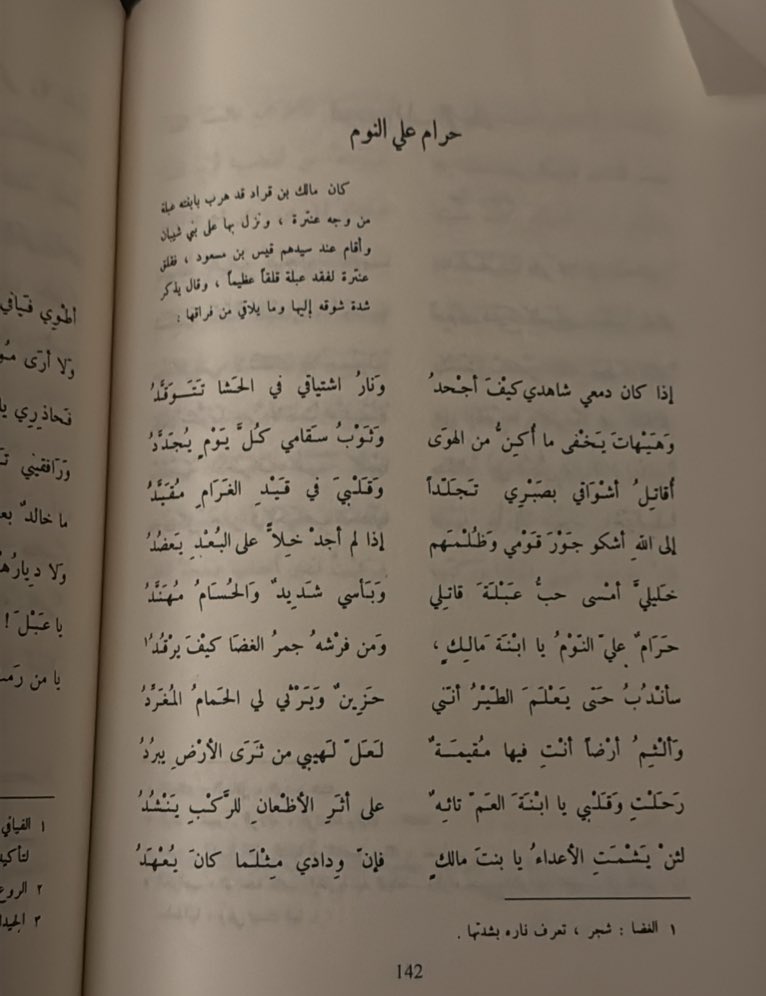 حرام علي النوم
كان مالك بن قراد قد هرب بابنته عبلة
من وجه عنترة ، ونزل بها على بني شيبان
وأقام عند سيدهم قيس بن مسعود ، فقلق
عنترة لفقد عبلة قلقاً عظيماً ، وقال يذكر
شدة شوقه إليها وما يلاقي من فراقها :
إذا كان دمعي شاهدي كيفَ أجْحدُ وَنارُ اشتياقي في الحَشا تَتَوَقَّدُ
وَهَيْهاتَ يَخْفى ما أُكِنُّ من الهوَى وَثَوْبُ سَقامي كلَّ يَوْمٍ يُجَدَّدُ
أُقاتِلُ أشْوَاقي بصَبْرِي تَجَلّداً وَقَلْبيَ في قَيْدِ الغَرَامِ مُقَيَّدُ
إلى اللهِ أشكو جَوْرَ قَوْمي وَظُلْمَهم إذا لم أجدْ خِلاًّ على البُعْدِ يَعضُدُ
خَليليَّ أمْسى حبُّ عَبْلَةَ قاتلي وَبَأسي شَديدٌ وَالحُسَامُ مُهَنَّدُ
حَرَامٌ عليّ النّوْمُ يا ابْنَةَ مالِكٍ ، وَمن فرْشهُ جمرُ الغضَا كيْفَ يرْقُدُ ١
سأنْدُبُ حَتّى يَعْلَمَ الطّيْرُ أنّني حَزينٌ وَيَرْثي لي الحَمامُ المُغَرِّدُ
وَألْثِمُ أرْضاً أنْتِ فيها مُقيمَةٌ لَعَلّ لَهيبي من ثَرَى الأرْضِ يبرُدُ
رَحَلْتِ وَقَلْبي يا ابْنَةَ العَمّ تائِهٌ على أثَرِ الأظْعانِ للرَّكْبِ يَنْشُدُ
لئنْ يَشْمَتِ الأعداءُ يا بنتَ مالكٍ فإنّ وِدادي مِثْلَما كانَ يُعْهَدُ
١ الغضا : شجر ، تعرف ناره بشدتها .
142
أطوي فيافي
وَلا أرى
وَرَافقيني
ما خالدٌ
يا عَبْلَ !
يا من
١ الفيافي
٢ الروع